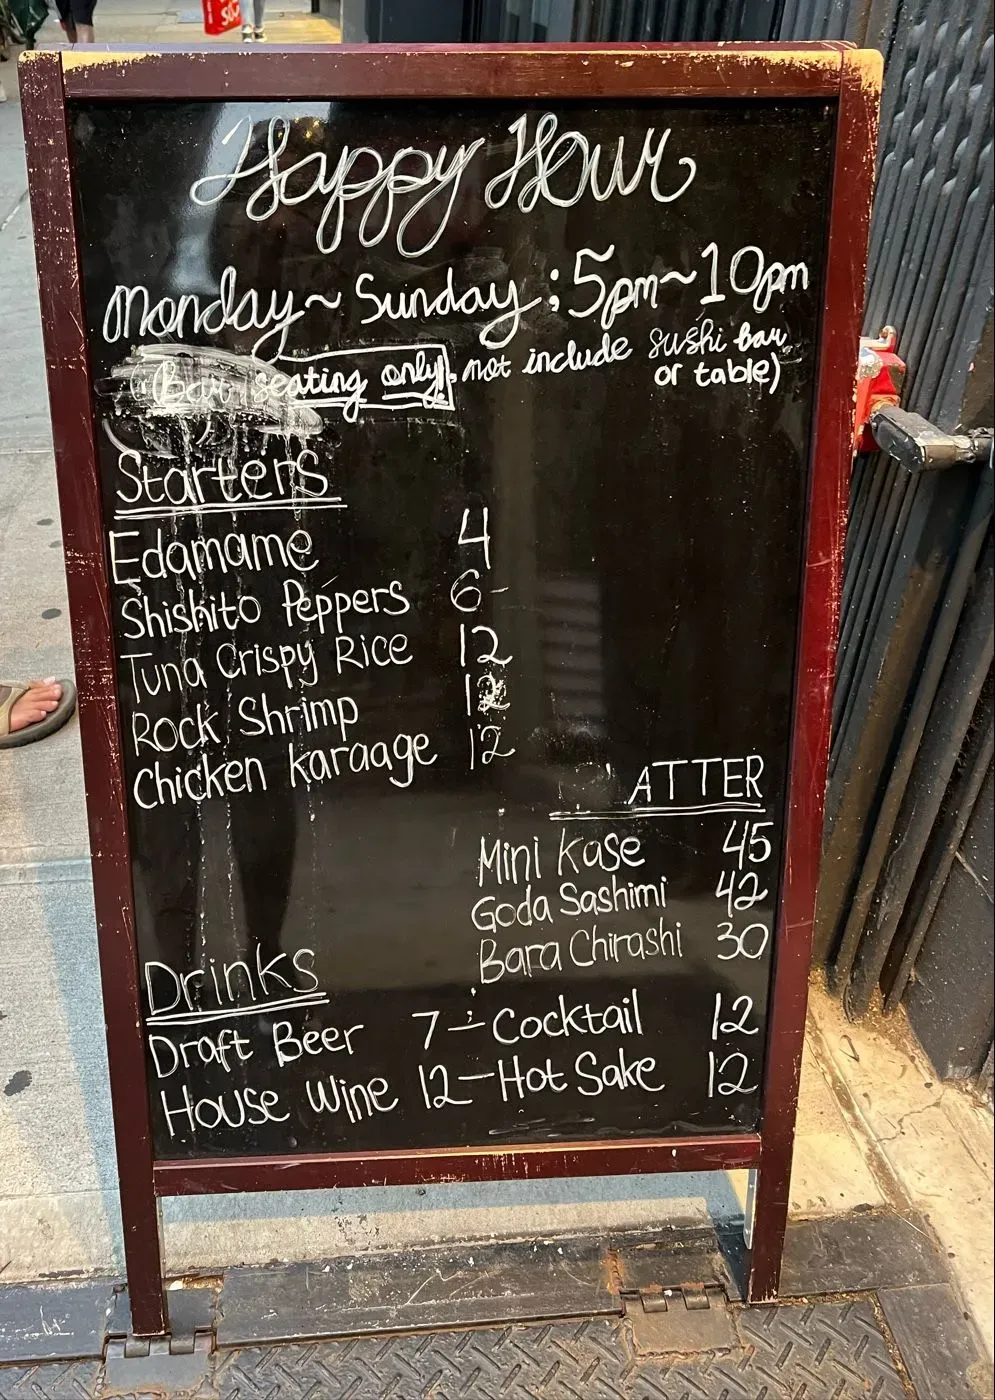 Happy Hour
Monday~Sunday; 5pm~10pm
(Bar seating only!, not include sushi bar
or table)
Starters
Edamame 4
Shishito Peppers 6-
Tuna Crispy Rice 12
Rock Shrimp 12
Chicken Karaage 12
ATTER
Mini Kase 45
Goda Sashimi 42
Bara Chirashi 30
Drinks
Draft Beer 7 - Cocktail 12
House Wine 12 - Hot Sake 12